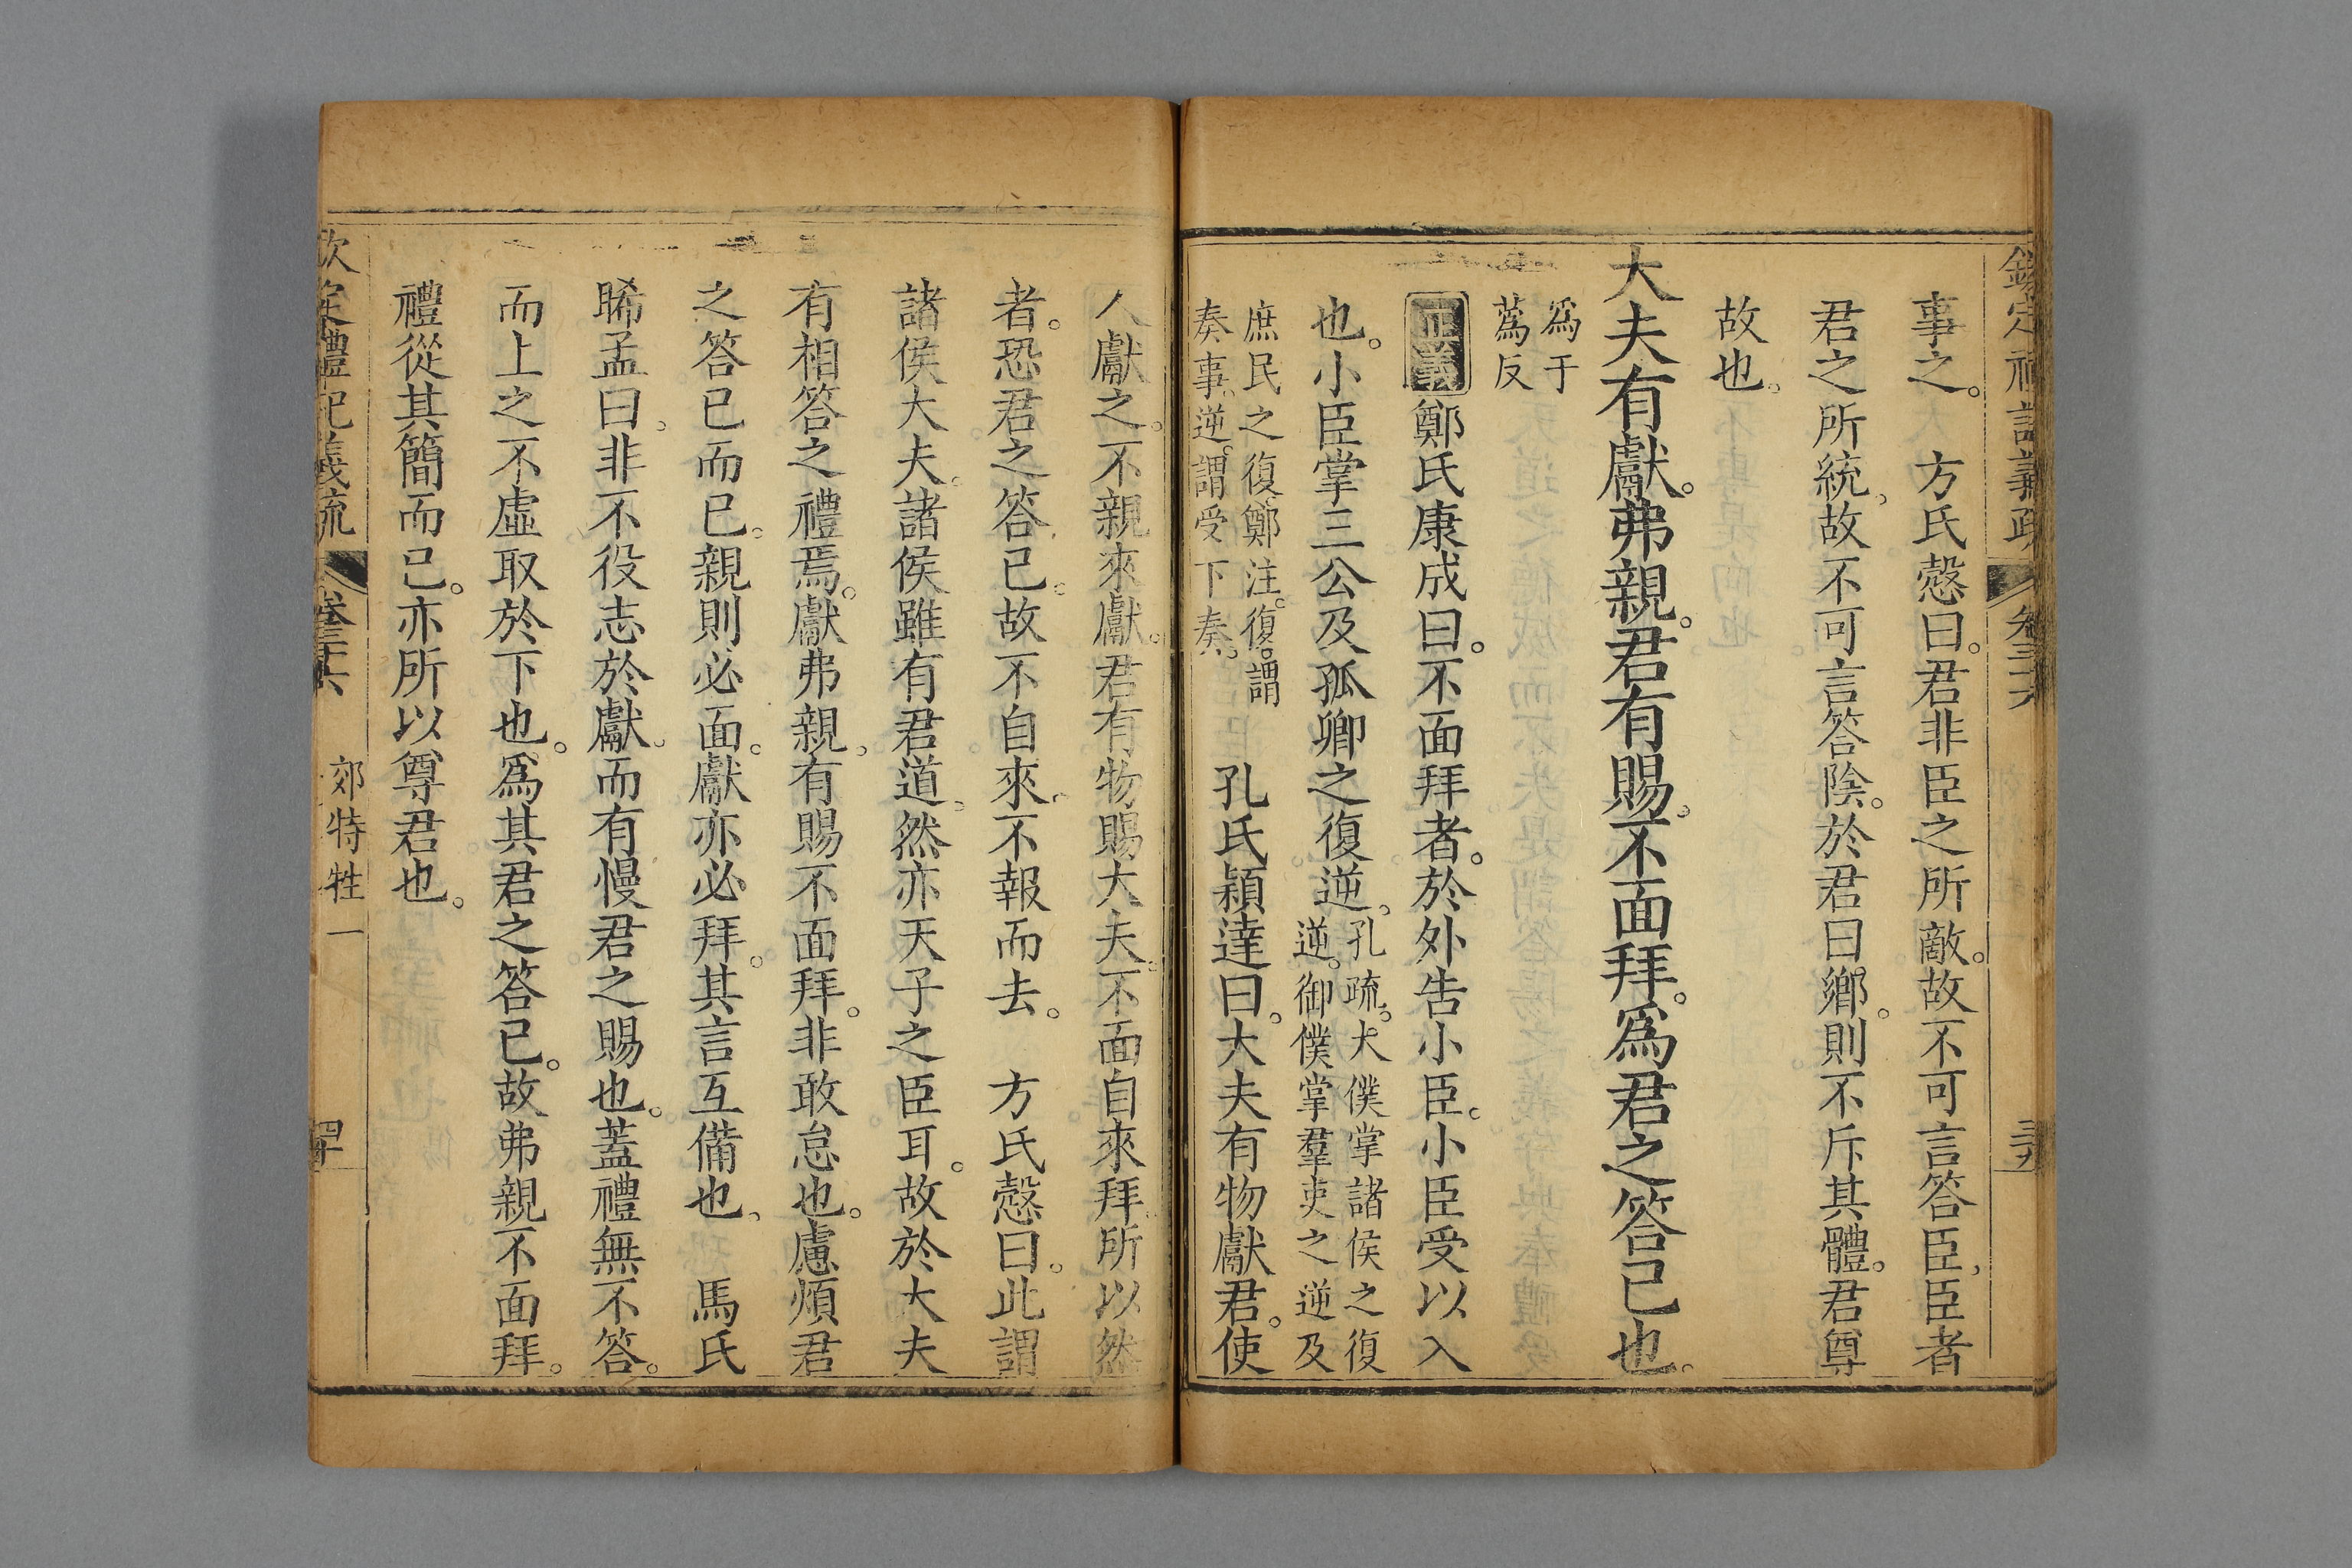 欽定禮記義疏 卷三十六 三九
事之。 方氏慤曰。君非臣之所敵。故不可言答臣、臣者
君之所統、故不可言答陰。於君曰鄉。則不斥其體。君尊
故也。
大夫有獻。弗親。君有賜。不面拜。爲君之答己也。
爲于
蒍反
正義鄭氏康成曰。不面拜者。於外告小臣。小臣受以入
也。小臣掌三公及孤卿之復逆。
孔疏。大僕掌諸侯之復
逆。御僕掌羣吏之逆及
庶民之復。鄭注。復。謂
奏事。逆。謂受下奏。
孔氏穎達曰。大夫有物獻君。使
人獻之。不親來獻。君有物賜大夫。不面自來拜。所以然
者。恐君之答己。故不自來。不報而去。 方氏慤曰。此謂
諸侯大夫。諸侯雖有君道、然亦天子之臣耳。故於大夫
有相答之禮焉。獻弗親。有賜不面拜。非敢怠也。慮煩君
之答已而已。親則必面。獻亦必拜。其言互備也。 馬氏
晞孟曰。非不役志於獻。而有慢君之賜也。蓋禮無不答。
而上之不虛取於下也。爲其君之答已。故弗親不面拜。
禮從其簡而已。亦所以尊君也。
欽定禮記義疏 卷三十六 郊特牲一 四十